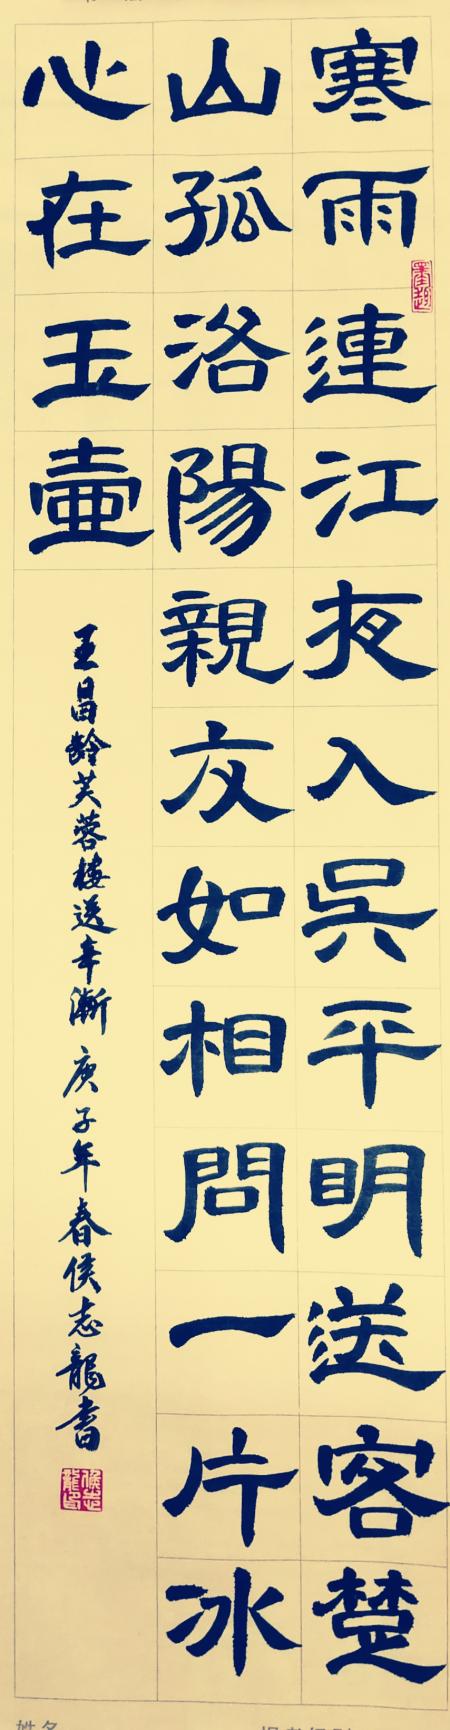 寒雨連江夜入吳平明送客楚
山孤洛陽親友如相問一片冰
心在玉壺
王昌齡芙蓉樓送辛漸 庚子年春侯志龍書
姓名